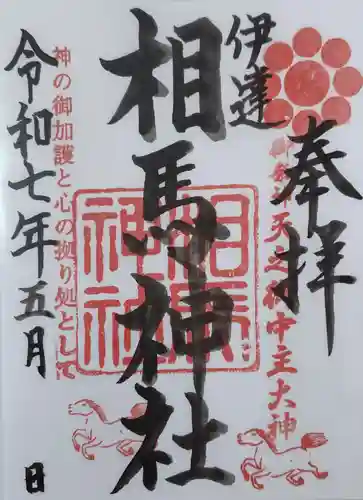 奉拝
御祭神 天之御中主大神
伊達
相馬神社
相馬神社
神の御加護と心の拠り処として
令和七年五月 日